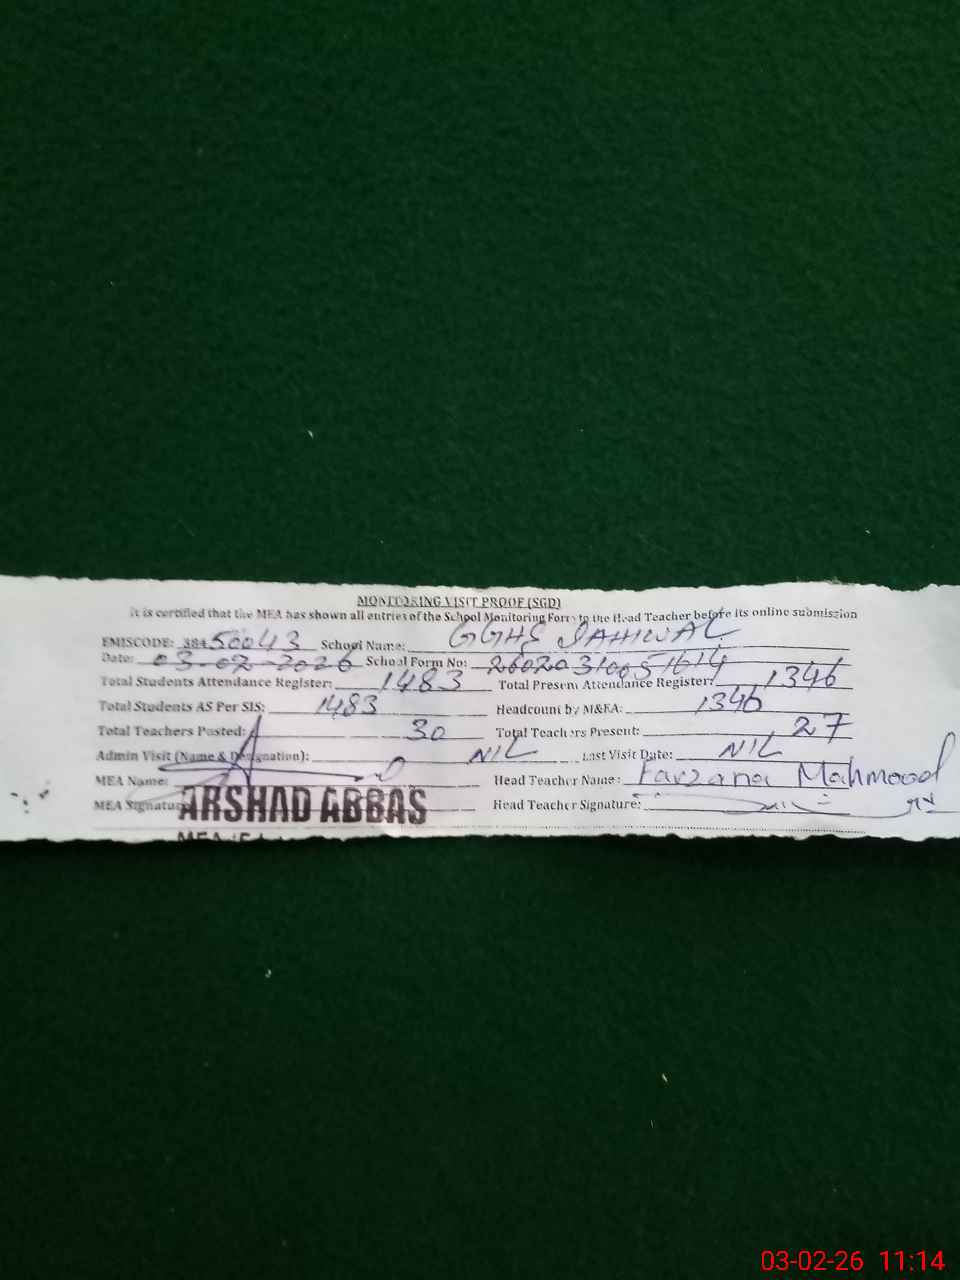 MONITORING VISIT PROOF (SGD)
It is certified that the MEA has shown all entries of the School Monitoring Form to the Head Teacher before its online submission
EMISCODE: 38450043 School Name: GGHS SAHIWAL
Date: 03-02-2026 School Form No: 26020310051614
Total Students Attendance Register: 1483 Total Present Attendance Register: 1346
Total Students AS Per SIS: 1483 Headcount by M&EA: 1346
Total Teachers Posted: 30 Total Teachers Present: 27
Admin Visit (Name & Designation): NIL Last Visit Date: NIL
MEA Name: Head Teacher Name: Farzana Mahmood
MEA Signature ARSHAD ABBAS Head Teacher Signature:
03-02-26 11:14